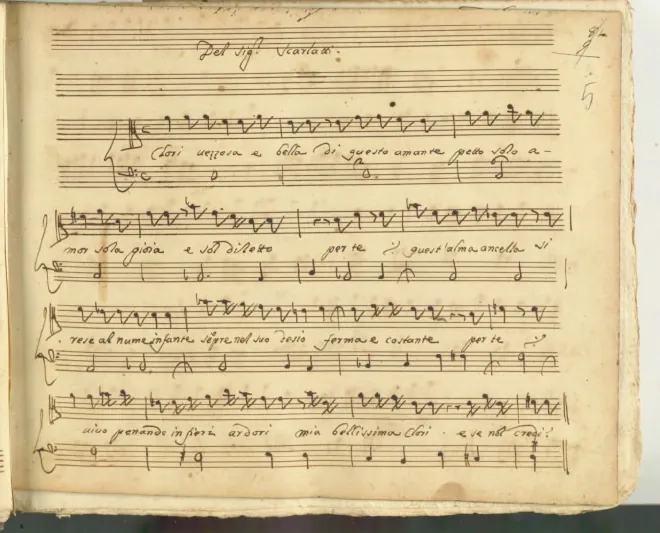 Del Sig.r Scarlatti.
5
Clori uezzosa e bella di questo amante petto solo a-
mor sola gioia e sol diletto per te quest'alma ancella si
rese al nume infante sẽpre nel suo desio ferma e costante per te
uiuo penando in fieri ardori mia bellissima Clori e se nol credi?